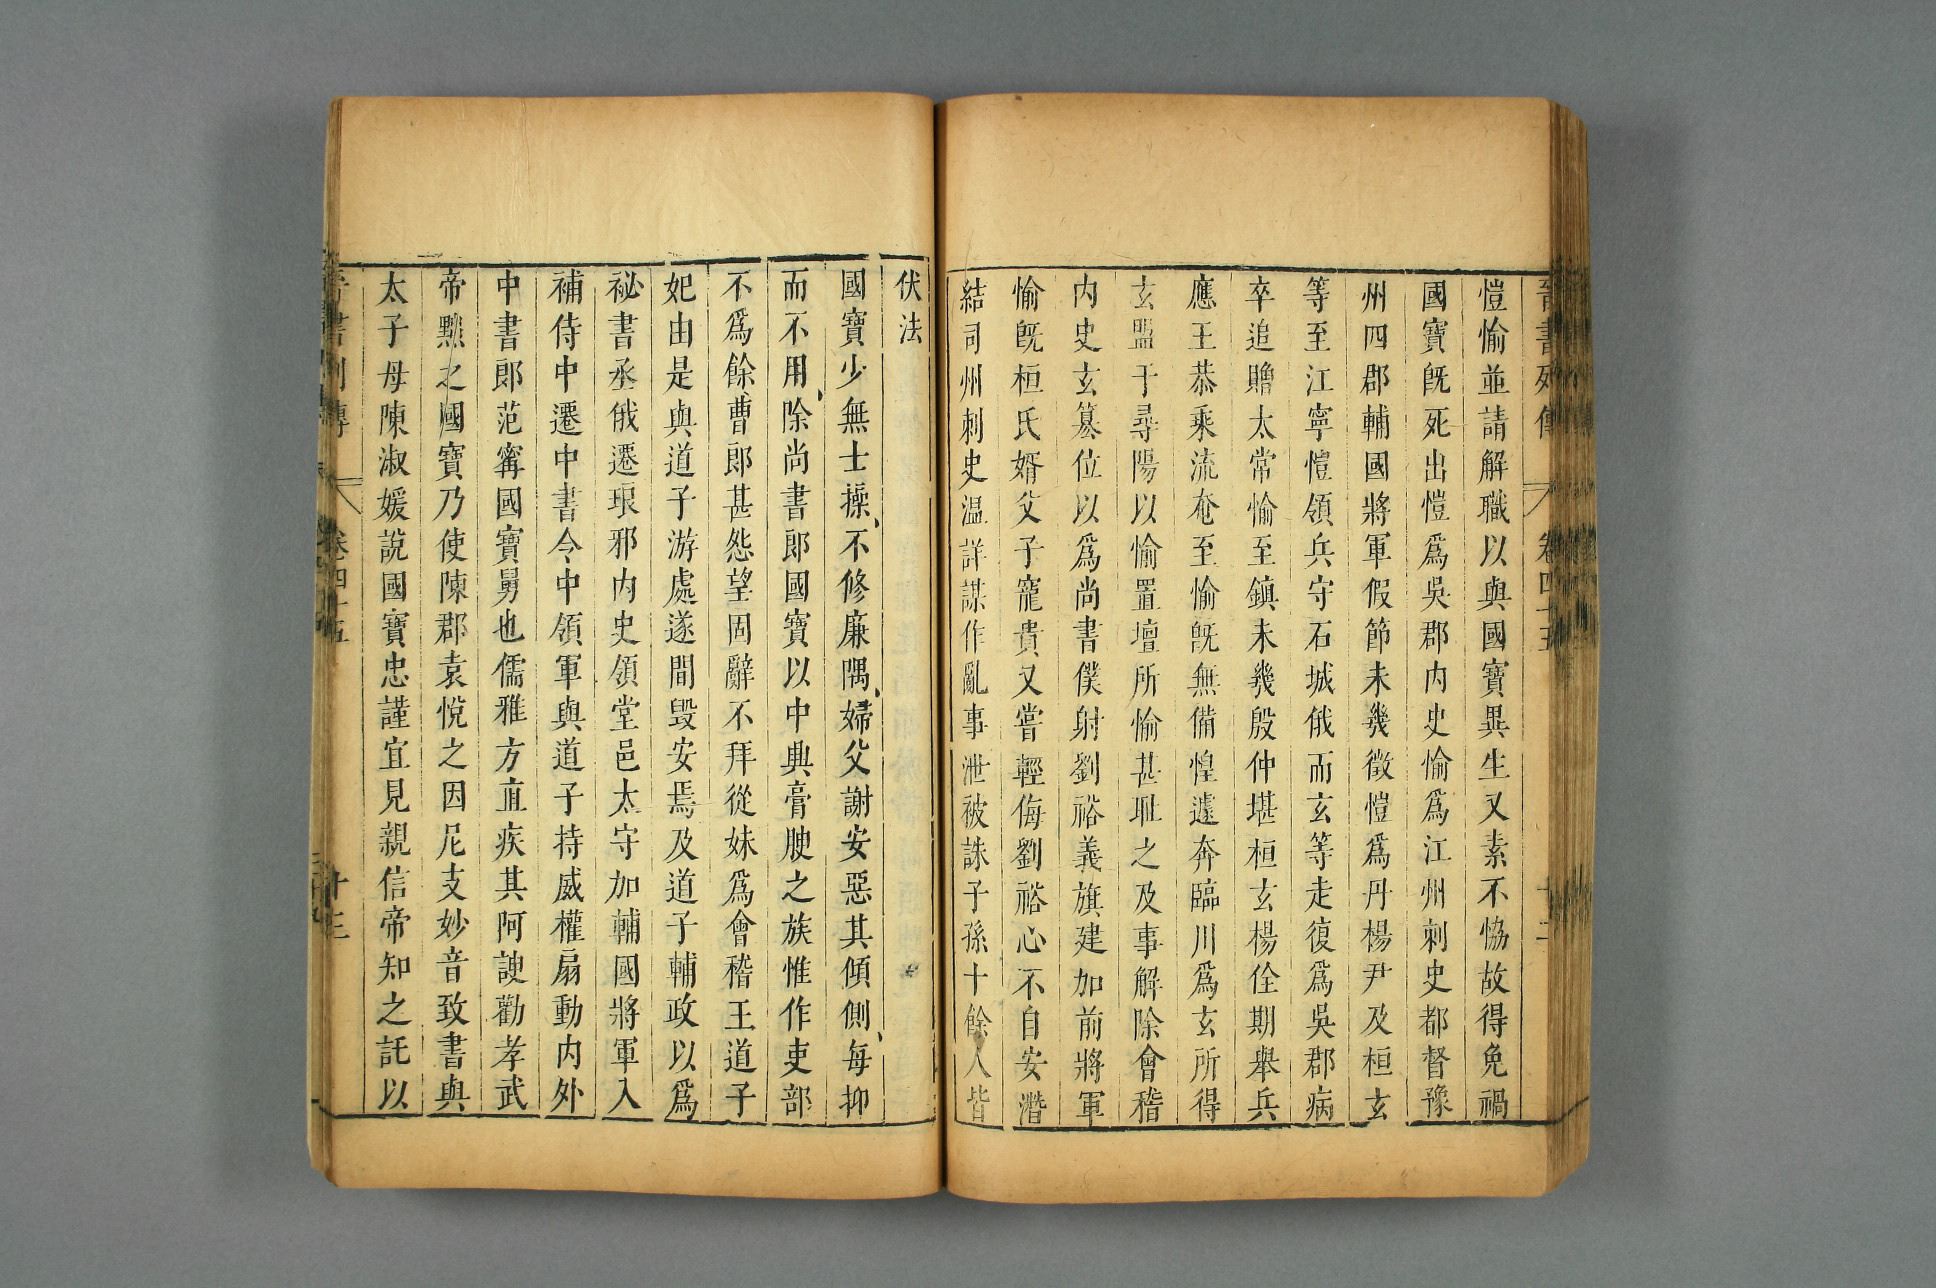 晉書列傳 卷四十五 十二
愷愉並請解職以與國寶異生又素不恊故得免禍
國寶旣死出愷爲吳郡内史愉爲江州刺史都督豫
州四郡輔國將軍假節未幾徵愷爲丹楊尹及桓玄
等至江寧愷領兵守石城俄而玄等走復爲吳郡病
卒追贈太常愉至鎮未幾殷仲堪桓玄楊佺期舉兵
應王恭乘流奄至愉旣無備惶遽奔臨川爲玄所得
玄盟于尋陽以愉置壇所愉甚耻之及事解除會稽
内史玄簒位以爲尚書僕射劉裕義旗建加前將軍
愉旣桓氏婿父子寵貴又嘗輕侮劉裕心不自安潛
結司州刺史温詳謀作亂事泄被誅子孫十餘人皆
伏法
國寶少無士操不修廉隅婦父謝安惡其傾側每抑
而不用除尚書郎國寶以中興膏腴之族惟作吏部
不爲餘曹郎甚怨望固辭不拜從妹爲會稽王道子
妃由是與道子游處遂間毀安焉及道子輔政以爲
祕書丞俄遷琅邪内史領堂邑太守加輔國將軍入
補侍中遷中書令中領軍與道子持威權扇動内外
中書郎范甯國寶舅也儒雅方直疾其阿諛勸孝武
帝黜之國寶乃使陳郡袁悅之因尼支妙音致書與
太子母陳淑媛說國寶忠謹宜見親信帝知之託以
晉書列傳 卷四十五 十三